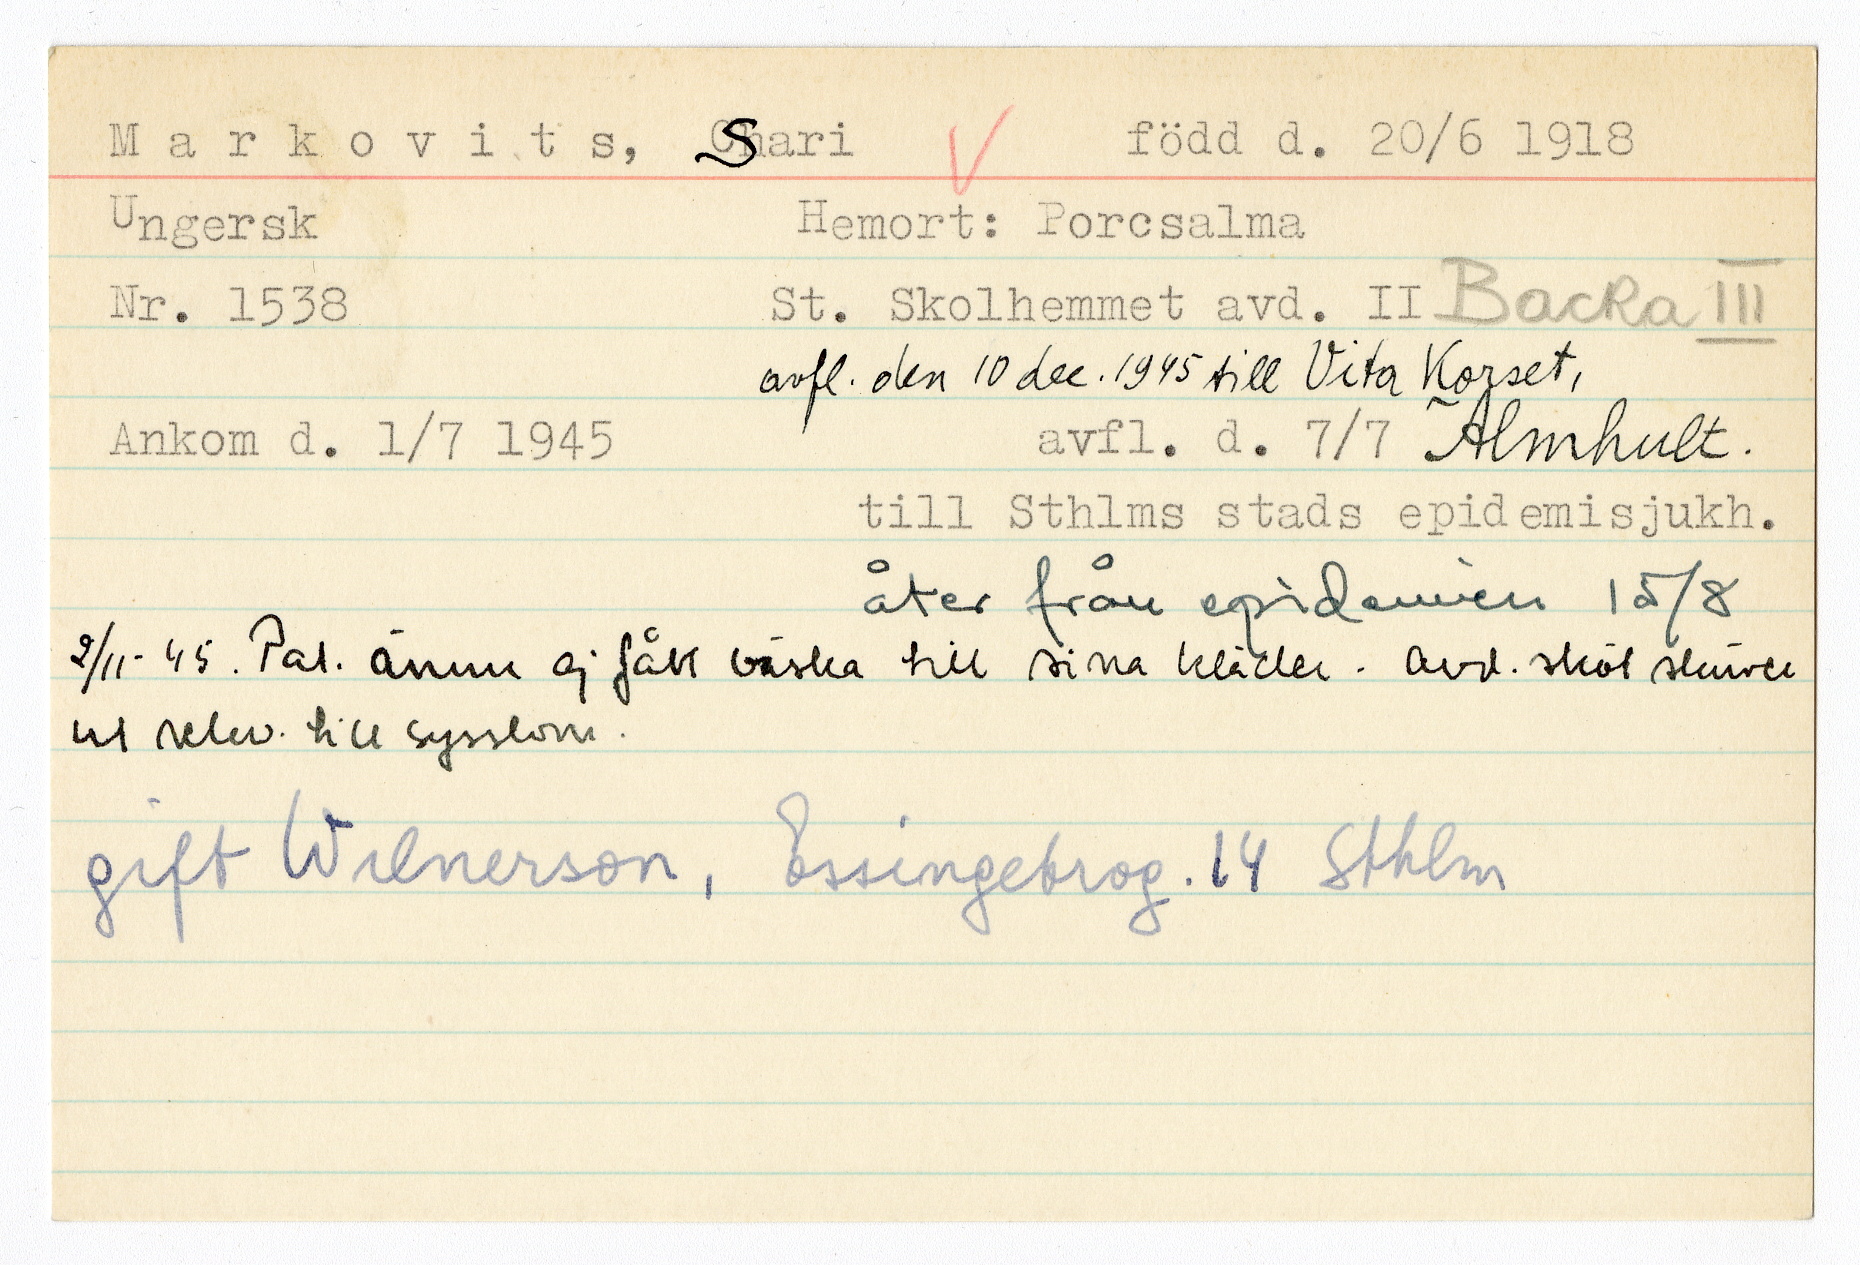 Markovits, Shari V född d. 20/6 1918
Ungersk Hemort: Porcsalma
Nr. 1538 St. Skolhemmet avd. II Backa III
avfl. den 10 dec. 1945 till Vita Korset,
Älmhult.
Ankom d. 1/7 1945 avfl. d. 7/7
till Sthlms stads epidemisjukh.
åter från epidemien 15/8
2/11-45. Pat. ännu ej fått väska till sina kläder. Avd. sköt skriver
ut rekv. till sysslom.
gift Wilnerson, Essingebrog. 14 Sthlm